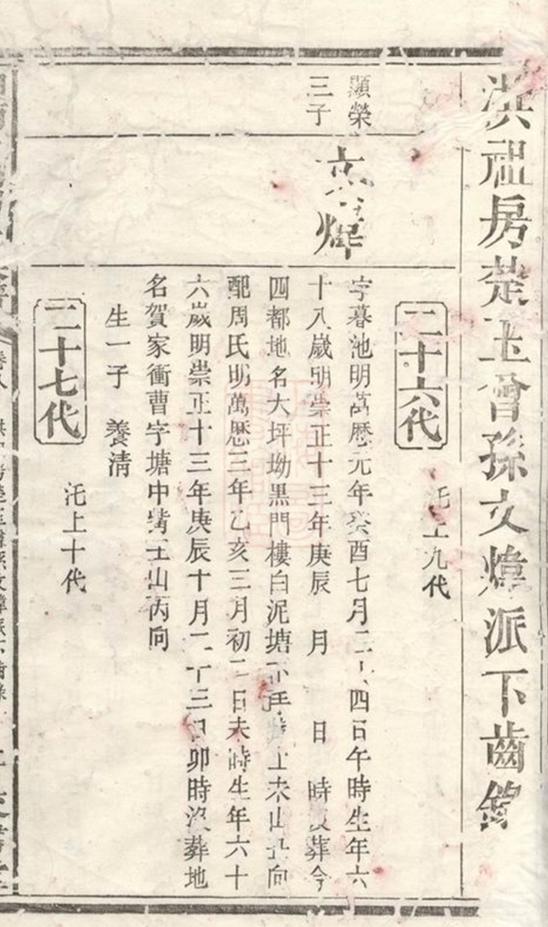 祖房楚玉會孫文煒派下齒錄
二十六代
汑上九代
顯榮
三子
文煒
字暮池明萬歷元年癸酉七月二十四日午時生年六
十八歲明崇正十三年庚辰 月 日 時没葬今
四都地名大坪坳黒門樓白泥塘
未山丑向
配周氏明萬歷三年乙亥三月初二日未時生年六十
六歲明崇正十三年庚辰十月二十三日卯時没葬地
名賀家衝曹字塘中
山丙向
生一子 養清
二十七代
汑上十代